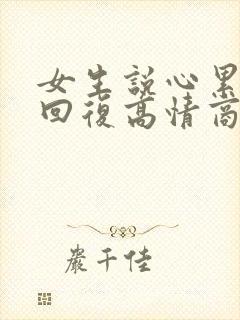 女生說心累
回復高情商
嚴千佳